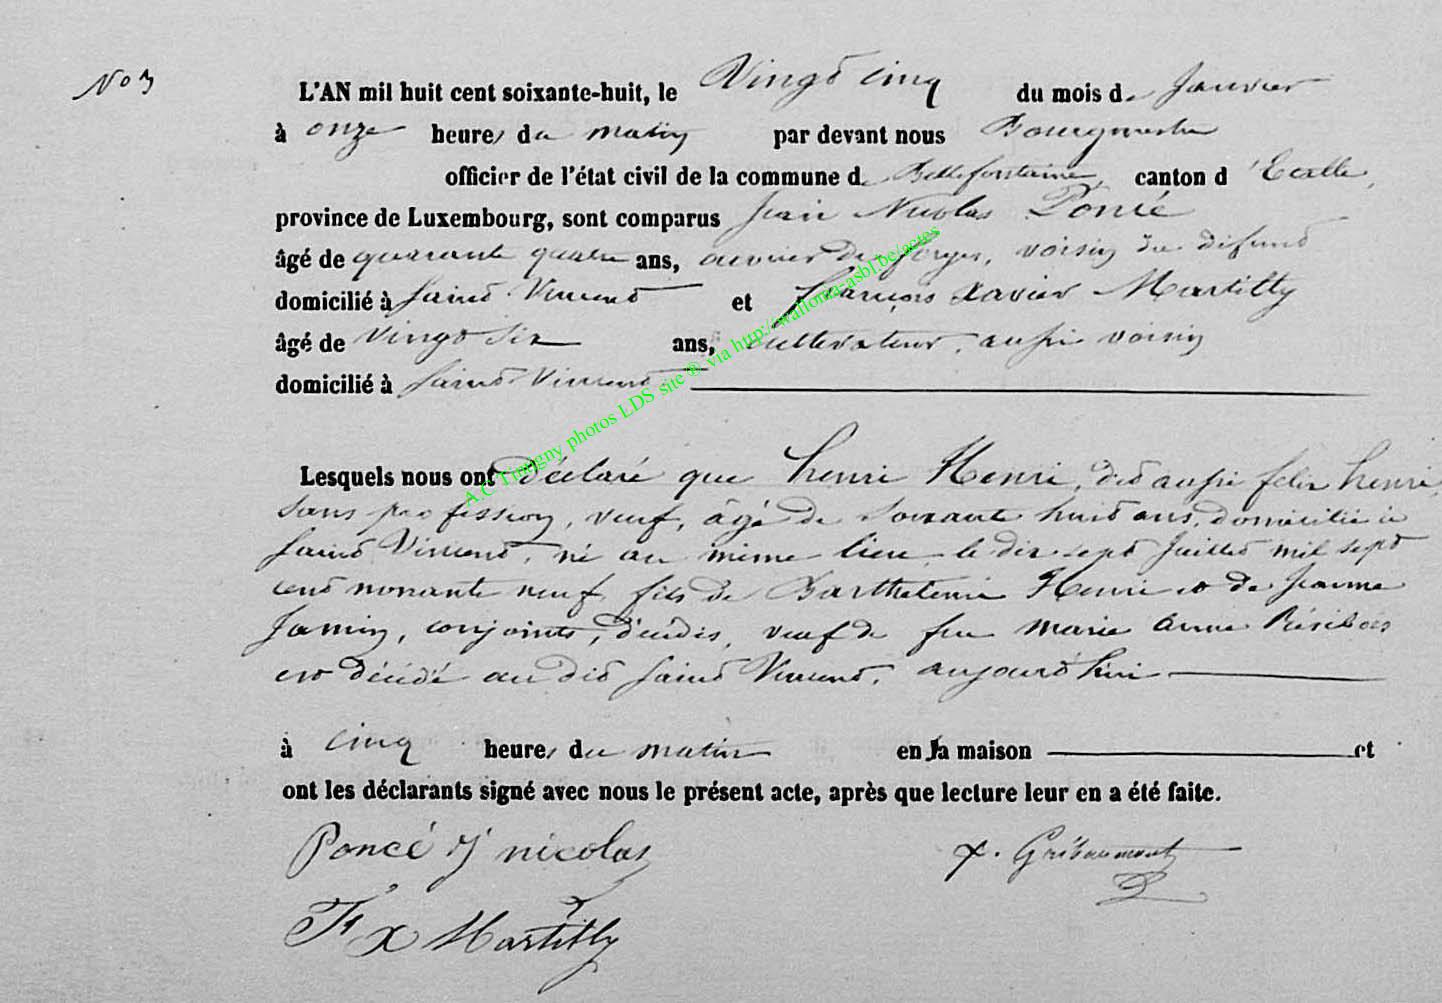 No 3
L'AN mil huit cent soixante-huit, le Vingt cinq du mois de Janvier
à onze heures du matin par devant nous Bourgmestre
officier de l'état civil de la commune de Bellefontaine, canton d'Etalle,
province de Luxembourg, sont comparus Jean Nicolas Poncé
âgé de quarante quatre ans, ouvrier de forges, voisin du défunt
domicilié à Saint Vincent et François Xavier Martilly
âgé de Vingt six ans, cultivateur, aussi voisin
domicilié à Saint Vincent
Lesquels nous ont déclaré que henri Henri, dit aussi felix henri,
sans profession, veuf, âgé de soixante huit ans, domicilié à
Saint Vincent, né au même lieu le dix sept Juillet mil sept
cent nonante neuf fils de Barthelemi Henri et de Jeanne
Jamin, conjoints, décédés, veuf de feu Marie Anne
est décédé au dit Saint Vincent, aujourd'hui
à cinq heures du matin en la maison et
ont les déclarants signé avec nous le présent acte, après que lecture leur en a été faite.
Poncé J nicolas
F X Martilly
Gribaumont
A.C Tintigny photos LDS site ® via http://wallonia-asbl.be/actes